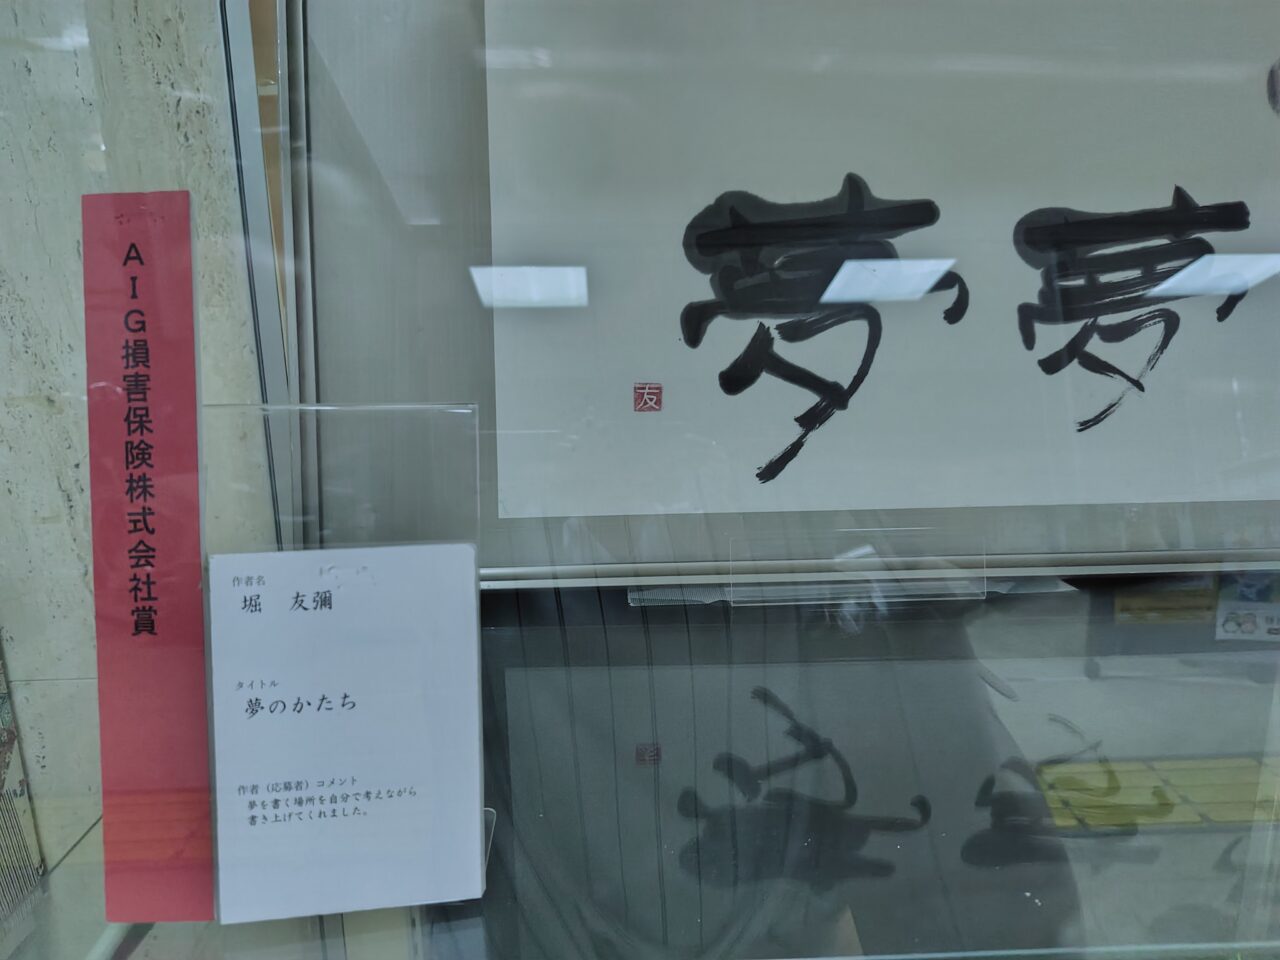 AIG損害保険株式会社賞
作者名
堀 友彌
タイトル
夢のかたち
作者（応募者）コメント
夢を書く場所を自分で考えながら
書き上げてくれました。
夢 夢
友